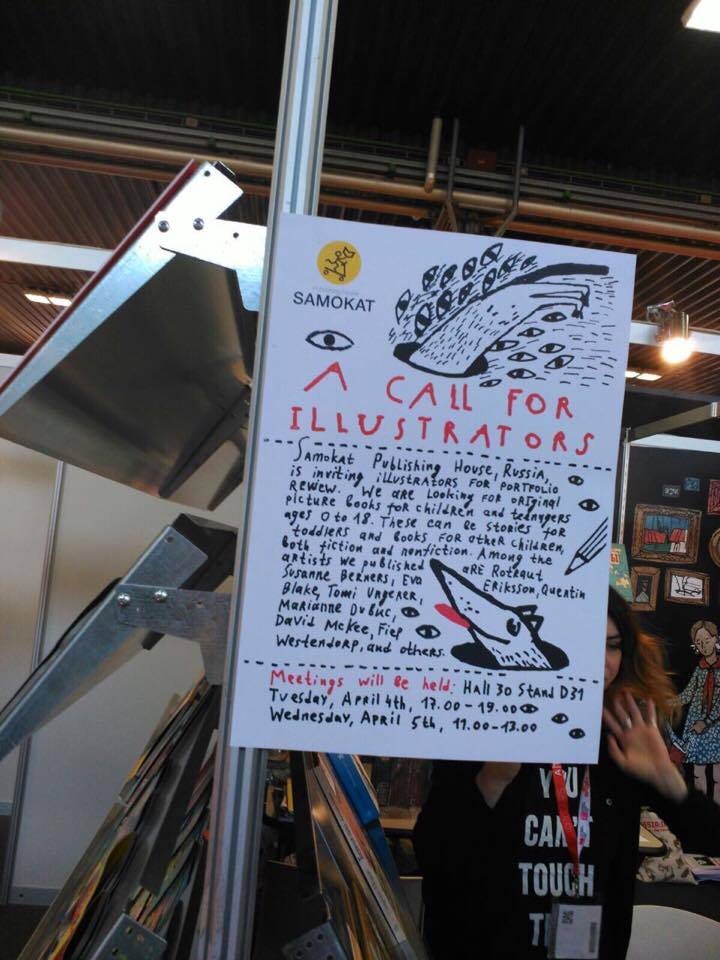 SAMOKAT
A CALL FOR
ILLUSTRATORS
Samokat Publishing House, Russia,
is inviting illustrators for portfolio
review. We are looking for original
picture books for children and teenagers
ages 0 to 18. These can be stories for
toddlers and books for other children,
both fiction and nonfiction. Among the
artists we published are Rotraut
Susanne Berners, Eva Eriksson, Quentin
Blake, Tomi Ungerer,
Marianne Dubuc,
David McKee, Fiep
Westendorp, and others.
Meetings will be held: Hall 30 Stand D31
Tuesday, April 4th, 17.00 - 19.00
Wednesday, April 5th, 11.00-13.00
YOU
CAN'T
TOUCH